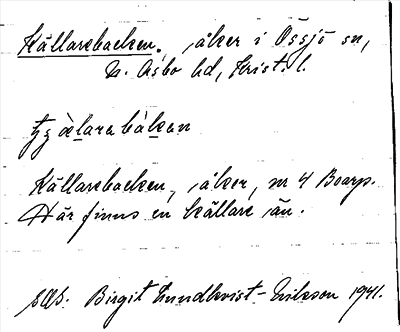 Källarebacken, åker i Össjö sn,
N. Åsbo hd, Krist. l.
Källarebacken, åker, nr 4 Boarp.
Här finns en källare än.
Birgit Lundkvist-Erikson 1941.